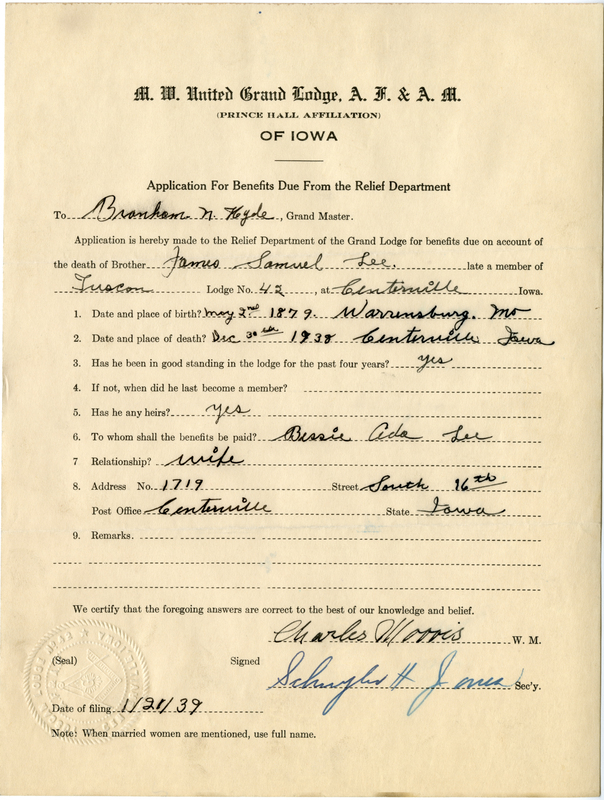 M. W. United Grand Lodge, A. F. & A. M.
(PRINCE HALL AFFILIATION)
OF IOWA
Application For Benefits Due From the Relief Department
To Branham N. Hyde, Grand Master.
Application is hereby made to the Relief Department of the Grand Lodge for benefits due on account of
the death of Brother James Samuel Lee. late a member of
Tuscan Lodge No. 42, at Centerville Iowa.
1. Date and place of birth? May 2nd 1879. Warrensburg. Mo
2. Date and place of death? Dec 30th 1938 Centerville Iowa
3. Has he been in good standing in the lodge for the past four years? yes
4. If not, when did he last become a member?
5. Has he any heirs? yes
6. To whom shall the benefits be paid? Bessie Ada Lee
7 Relationship? wife
8. Address No. 1719 Street South 16th
Post Office Centerville State Iowa
9. Remarks.
We certify that the foregoing answers are correct to the best of our knowledge and belief.
Charles Morris W. M.
(Seal) Signed
Schuyler H Jones Sec'y.
Date of filing 1/20/39
Note: When married women are mentioned, use full name.